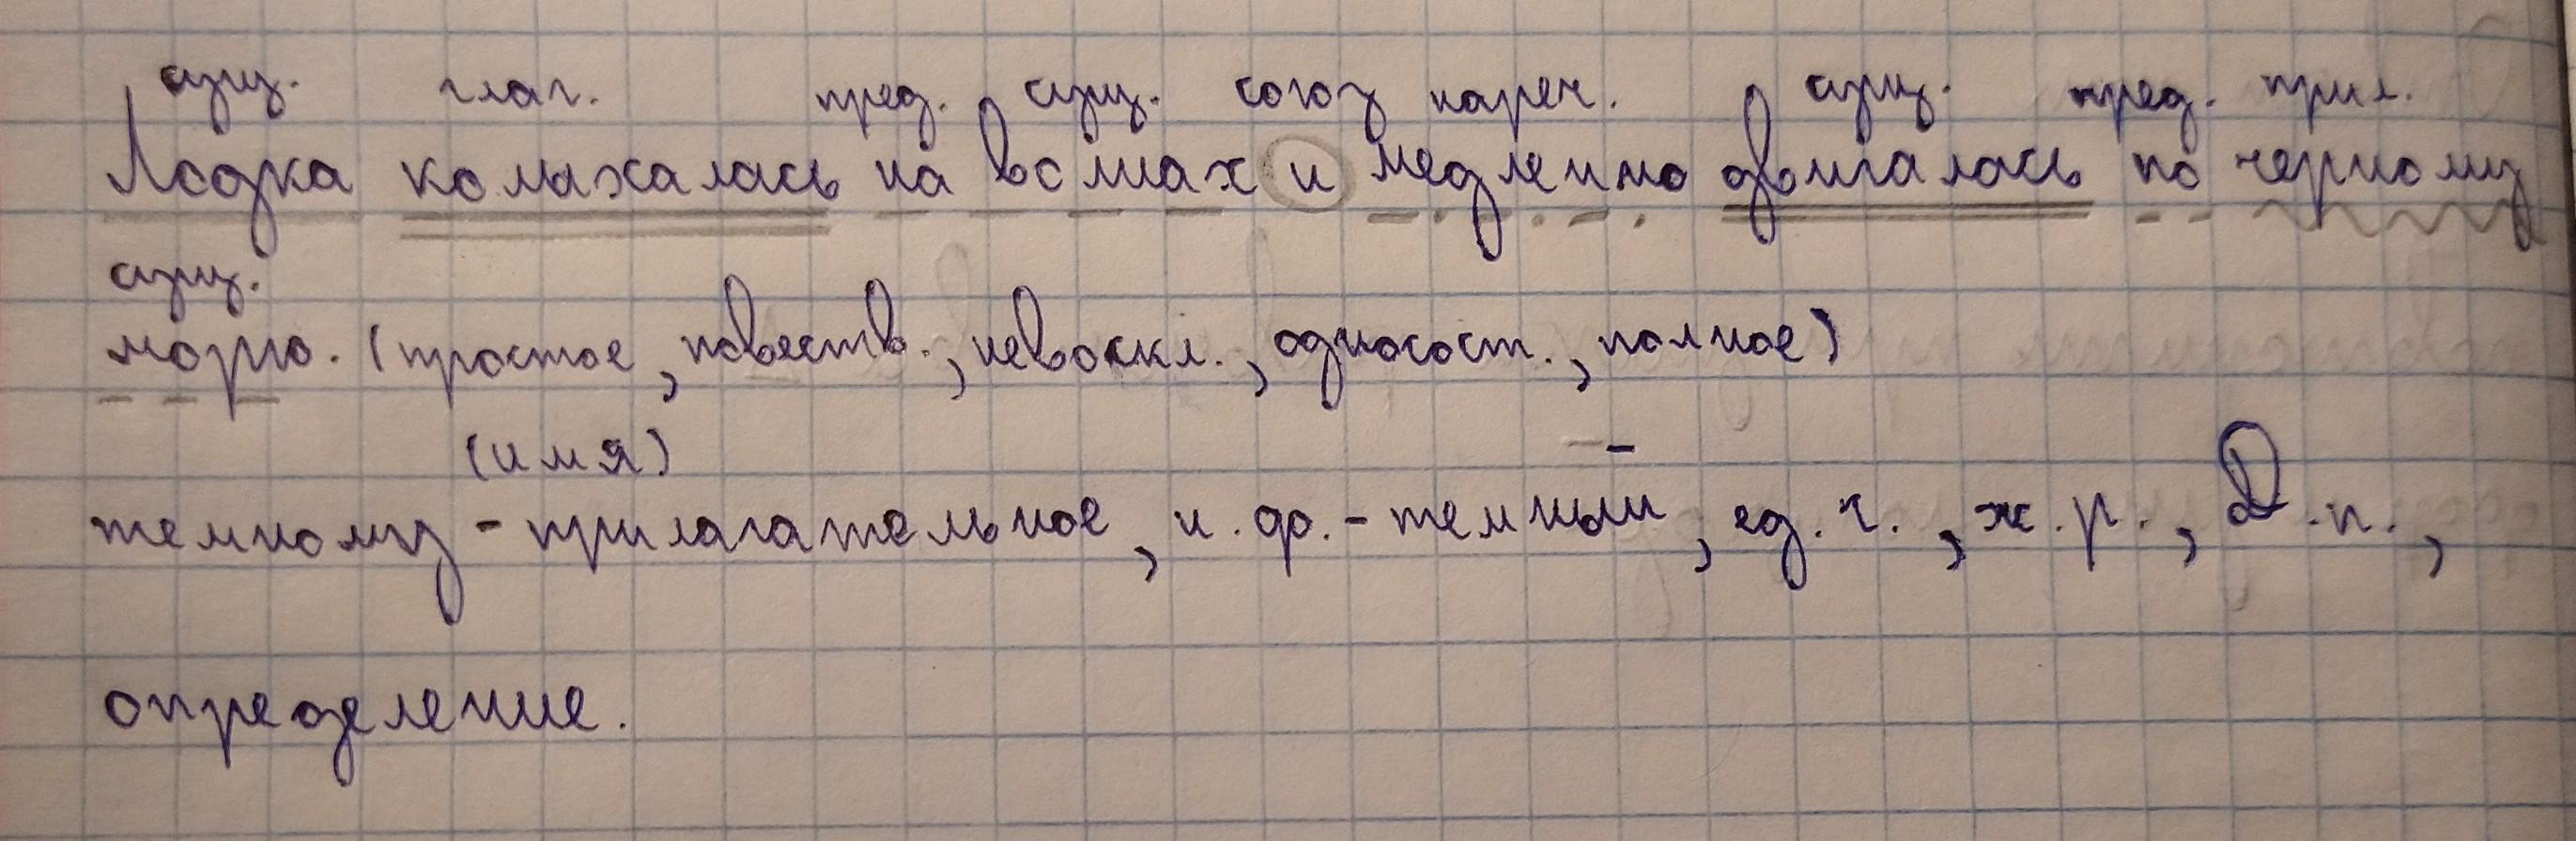 сущ. глаг. пред. сущ. союз нареч. сущ. пред. прил.
Лодка колыхалась на волнах и медленно двигалась по черному
сущ.
морю. (простое, повеств., невоскл., односост., полное)
(имя)
темному - прилагательное, н. ф. - темный, ед. ч., ж. р., Д. п.,
определение.